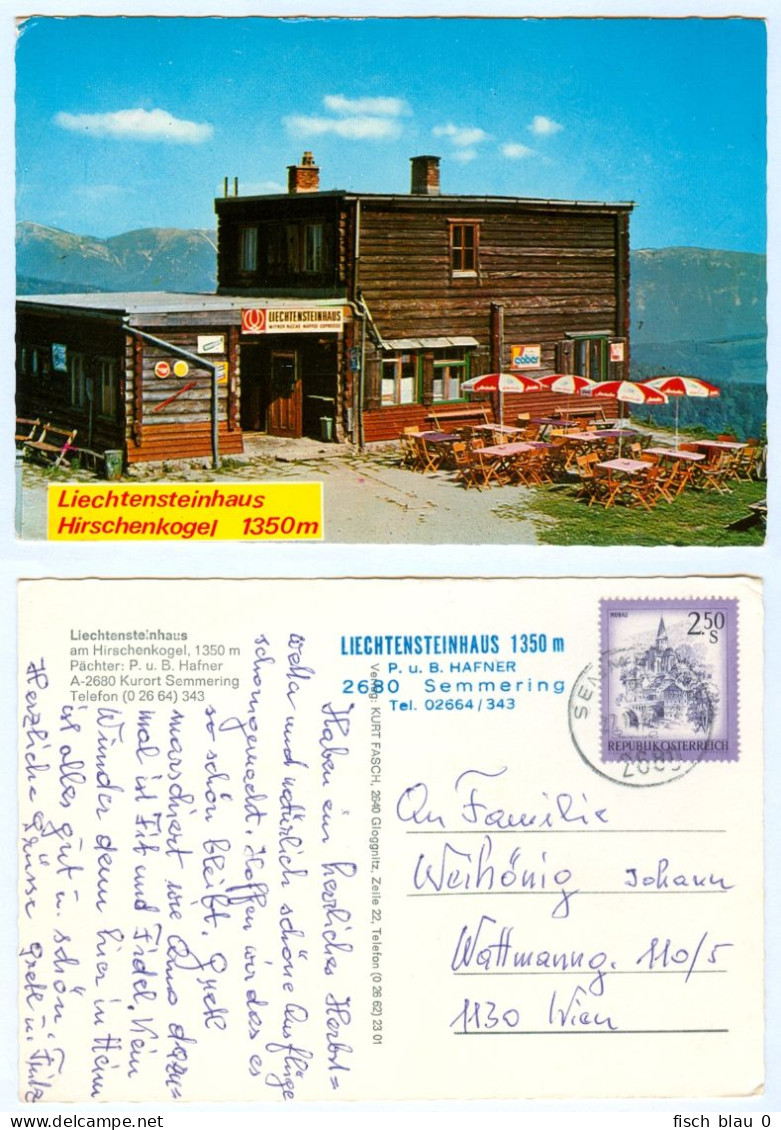 LIECHTENSTEINHAUS
cabor
Liechtensteinhaus
Hirschenkogel 1350m
Liechtensteinhaus
am Hirschenkogel, 1350 m
Pächter: P. u. B. Hafner
A-2680 Kurort Semmering
Telefon (0 26 64) 343
LIECHTENSTEINHAUS 1350 m
P. u. B. HAFNER
2680 Semmering
Tel. 02664/343
2.50
S
REPUBLIK ÖSTERREICH
2680
Verlag: KURT FASCH, 2640 Gloggnitz, Zeile 22, Telefon (0 26 62) 23 01
Haben ein herrliches Herbst=
wetter und natürlich schöne Ausflüge
schon gemacht. Hoffen wir das es
so schön bleibt. Grete
marschiert wie
mal ist Fit und Fidel. Kein
Wunder denn hier in Heim
ist alles gut u. schön.
Herzliche Grüsse Grete u. Fritz
An Familie
Weihönig Johann
Wattmanng. 110/5
1130 Wien
fisch_blau_0